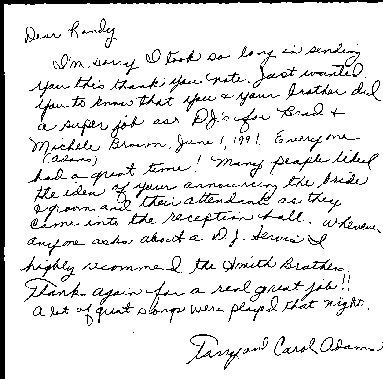 Dear Randy
I'm sorry I took so long in sending
you this thank you note. Just wanted
you to know that you & your brother did
a super job as DJ's for Brad &
Michele Brown, June 1, 1991. Everyone
(Adams)
had a great time! Many people liked
the idea of your announcing the bride
& groom and their attendants as they
came into the reception hall. Whenever
anyone asks about a D.J. Service I
highly recommend the Smith Brothers.
Thanks again for a real great job!!
A lot of great songs were played that night.
Terry and Carol Adams